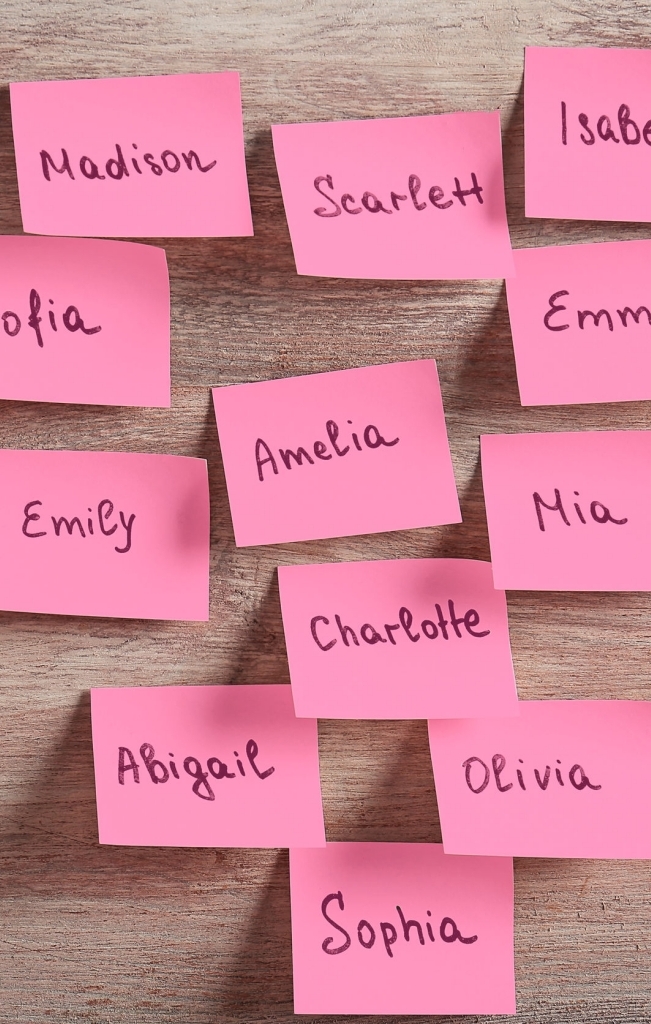 Madison
Scarlett
Isabe
ofia
Emm
Amelia
Emily
Mia
Charlotte
Abigail
Olivia
Sophia